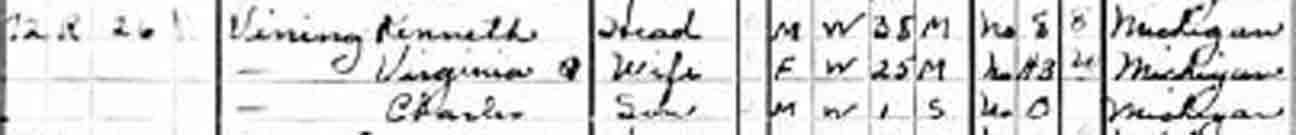 72 R 26 Vining Kenneth Head M W 38 M No 8 8 Michigan
— Virginia Wife F W 25 M No H3 Michigan
— Charles Son M W 1 S No 0 Michigan